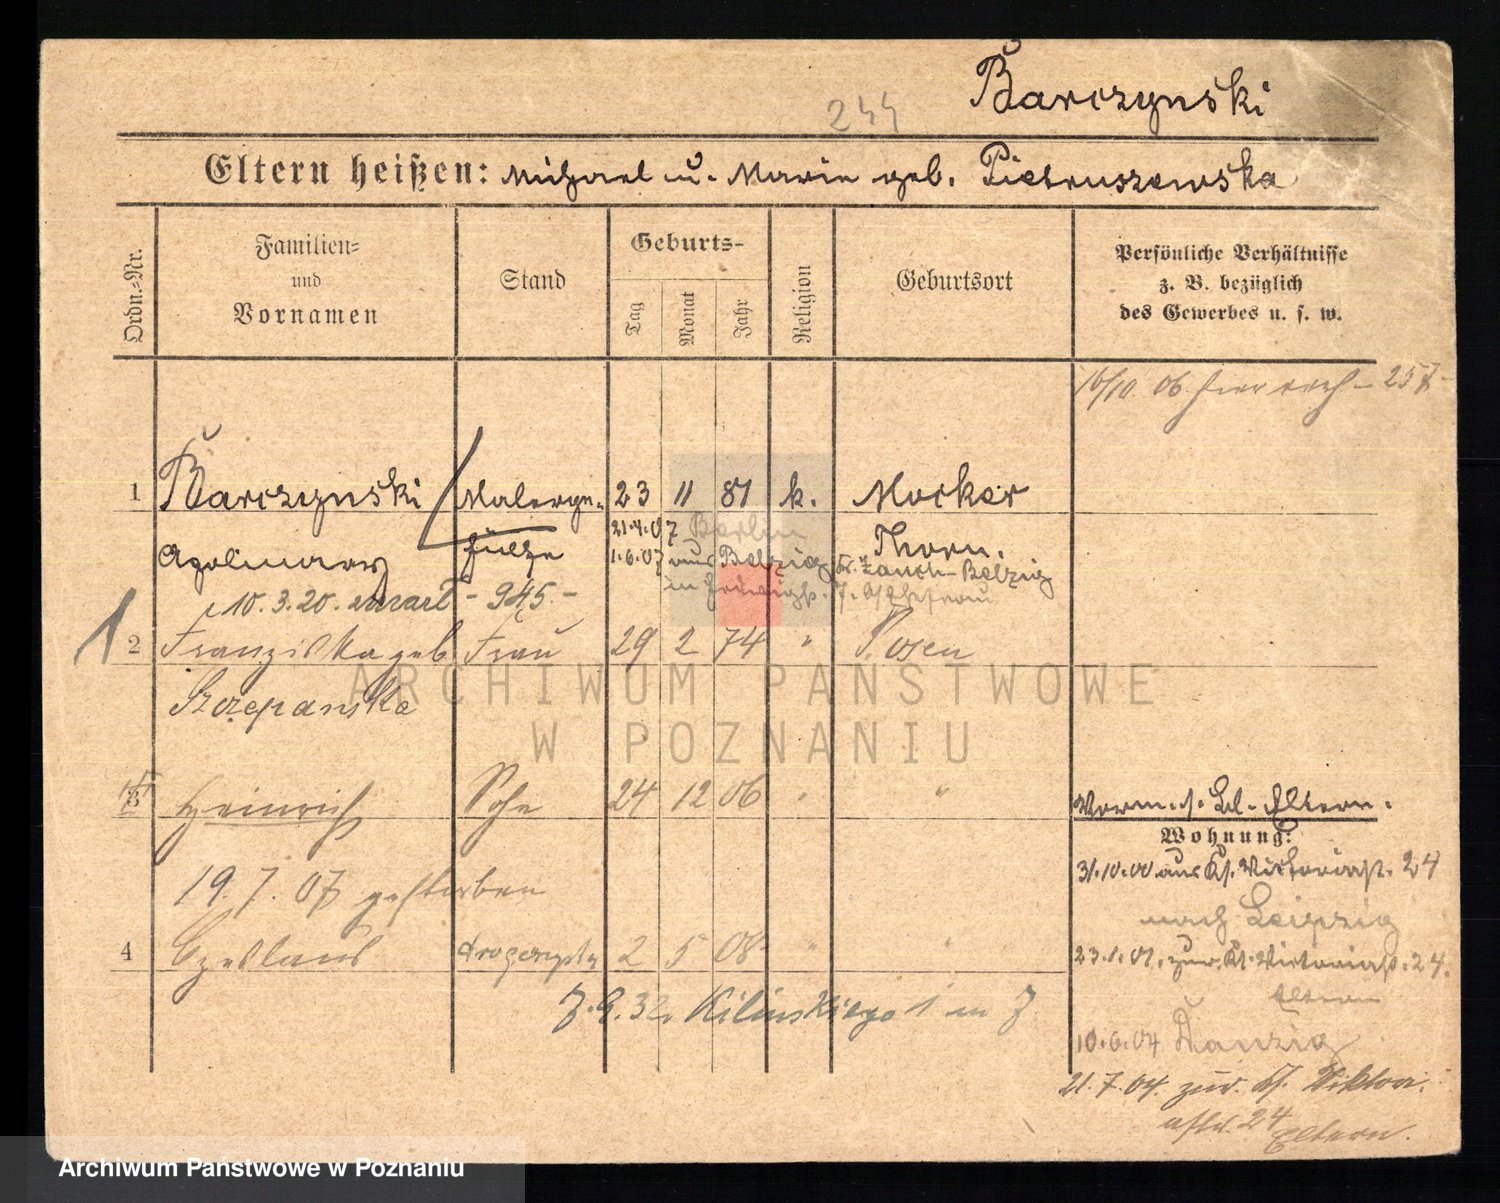 Barczynski
244
Eltern heißen: Michael u. Marie geb. Pietruszewska
Ordn.-Nr.
Familien-
und
Vornamen
Stand
Geburts-
Tag
Monat
Jahr
Religion
Geburtsort
Persönliche Verhältnisse
z. B. bezüglich
des Gewerbes u. s. w.
16/10. 06
1 Barczynski Malerge- 23 11 81 k. Mocker
hülfe Thorn.
21.4.07 Berlin
1.6.07 aus Belzig Kr. Zauch-Belzig
10.3.20. - 945.-
1
2 Franziska geb Frau 29 2 74 " Posen
Szczepanska
3 Heinrich Sohn 24 12 06 " "
19.7.07 gestorben
4 Czeslaus 2 5 08 " "
7.9.32 Kilinskiego 1 m 7
Eltern.
Wohnung:
31.10.00 aus Kl. Victoriast. 24
nach Leipzig
23.1.01. zur. Kl. Victoriast. 24.
Eltern
10.6.04 Danzig
21.7.04. zur. Kl. Viktoria
24
Eltern.
ARCHIWUM PAŃSTWOWE
W POZNANIU
Archiwum Państwowe w Poznaniu